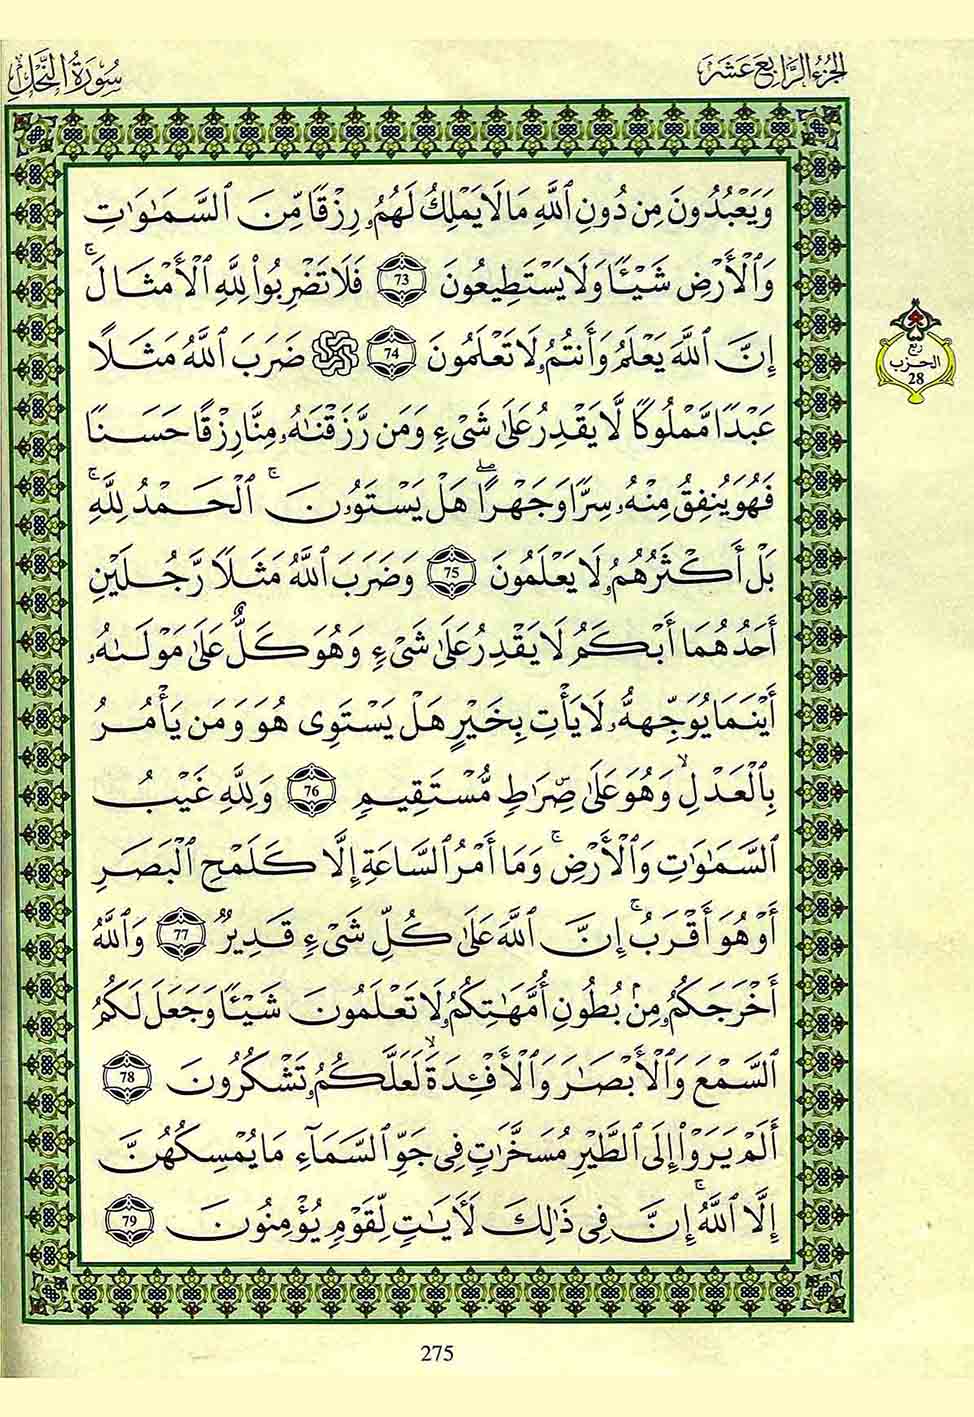 الجزء الرابع عشر
سورة النحل
وَيَعْبُدُونَ مِن دُونِ ٱللَّهِ مَا لَا يَمْلِكُ لَهُمُۥ رِزْقًا مِّنَ ٱلسَّمَٰوَٰتِ
وَٱلْأَرْضِ شَيْـًٔا وَلَا يَسْتَطِيعُونَ 73 فَلَا تَضْرِبُوا۟ لِلَّهِ ٱلْأَمْثَالَ ۚ
إِنَّ ٱللَّهَ يَعْلَمُ وَأَنتُمُۥ لَا تَعْلَمُونَ 74 ۞ ضَرَبَ ٱللَّهُ مَثَلًا
عَبْدًا مَّمْلُوكًا لَّا يَقْدِرُ عَلَىٰ شَىْءٍ وَمَن رَّزَقْنَٰهُۥ مِنَّا رِزْقًا حَسَنًا
فَهُوَ يُنفِقُ مِنْهُۥ سِرًّا وَجَهْرًا ۖ هَلْ يَسْتَوُۥنَ ۚ ٱلْحَمْدُ لِلَّهِ ۚ
بَلْ أَكْثَرُهُمُۥ لَا يَعْلَمُونَ 75 وَضَرَبَ ٱللَّهُ مَثَلًا رَّجُلَيْنِ
أَحَدُهُمَا أَبْكَمُ لَا يَقْدِرُ عَلَىٰ شَىْءٍ وَهُوَ كَلٌّ عَلَىٰ مَوْلَىٰهُۥ
أَيْنَمَا يُوَجِّههُّۥ لَا يَأْتِ بِخَيْرٍ هَلْ يَسْتَوِى هُوَ وَمَن يَأْمُرُ
بِٱلْعَدْلِ ۙ وَهُوَ عَلَىٰ صِرَٰطٍ مُّسْتَقِيمٍ 76 وَلِلَّهِ غَيْبُ
ٱلسَّمَٰوَٰتِ وَٱلْأَرْضِ ۚ وَمَا أَمْرُ ٱلسَّاعَةِ إِلَّا كَلَمْحِ ٱلْبَصَرِ
أَوْ هُوَ أَقْرَبُ ۚ إِنَّ ٱللَّهَ عَلَىٰ كُلِّ شَىْءٍ قَدِيرٌ 77 وَٱللَّهُ
أَخْرَجَكُمُۥ مِنۢ بُطُونِ أُمَّهَٰتِكُمُۥ لَا تَعْلَمُونَ شَيْـًٔا وَجَعَلَ لَكُمُ
ٱلسَّمْعَ وَٱلْأَبْصَٰرَ وَٱلْأَفْـِٔدَةَ ۙ لَعَلَّكُمُۥ تَشْكُرُونَ 78
أَلَمْ يَرَوْا۟ إِلَى ٱلطَّيْرِ مُسَخَّرَٰتٍ فِى جَوِّ ٱلسَّمَآءِ مَا يُمْسِكُهُنَّ
إِلَّا ٱللَّهُ ۚ إِنَّ فِى ذَٰلِكَ لَأَيَٰتٍ لِّقَوْمٍ يُؤْمِنُونَ 79
ربع
الحزب
28
275